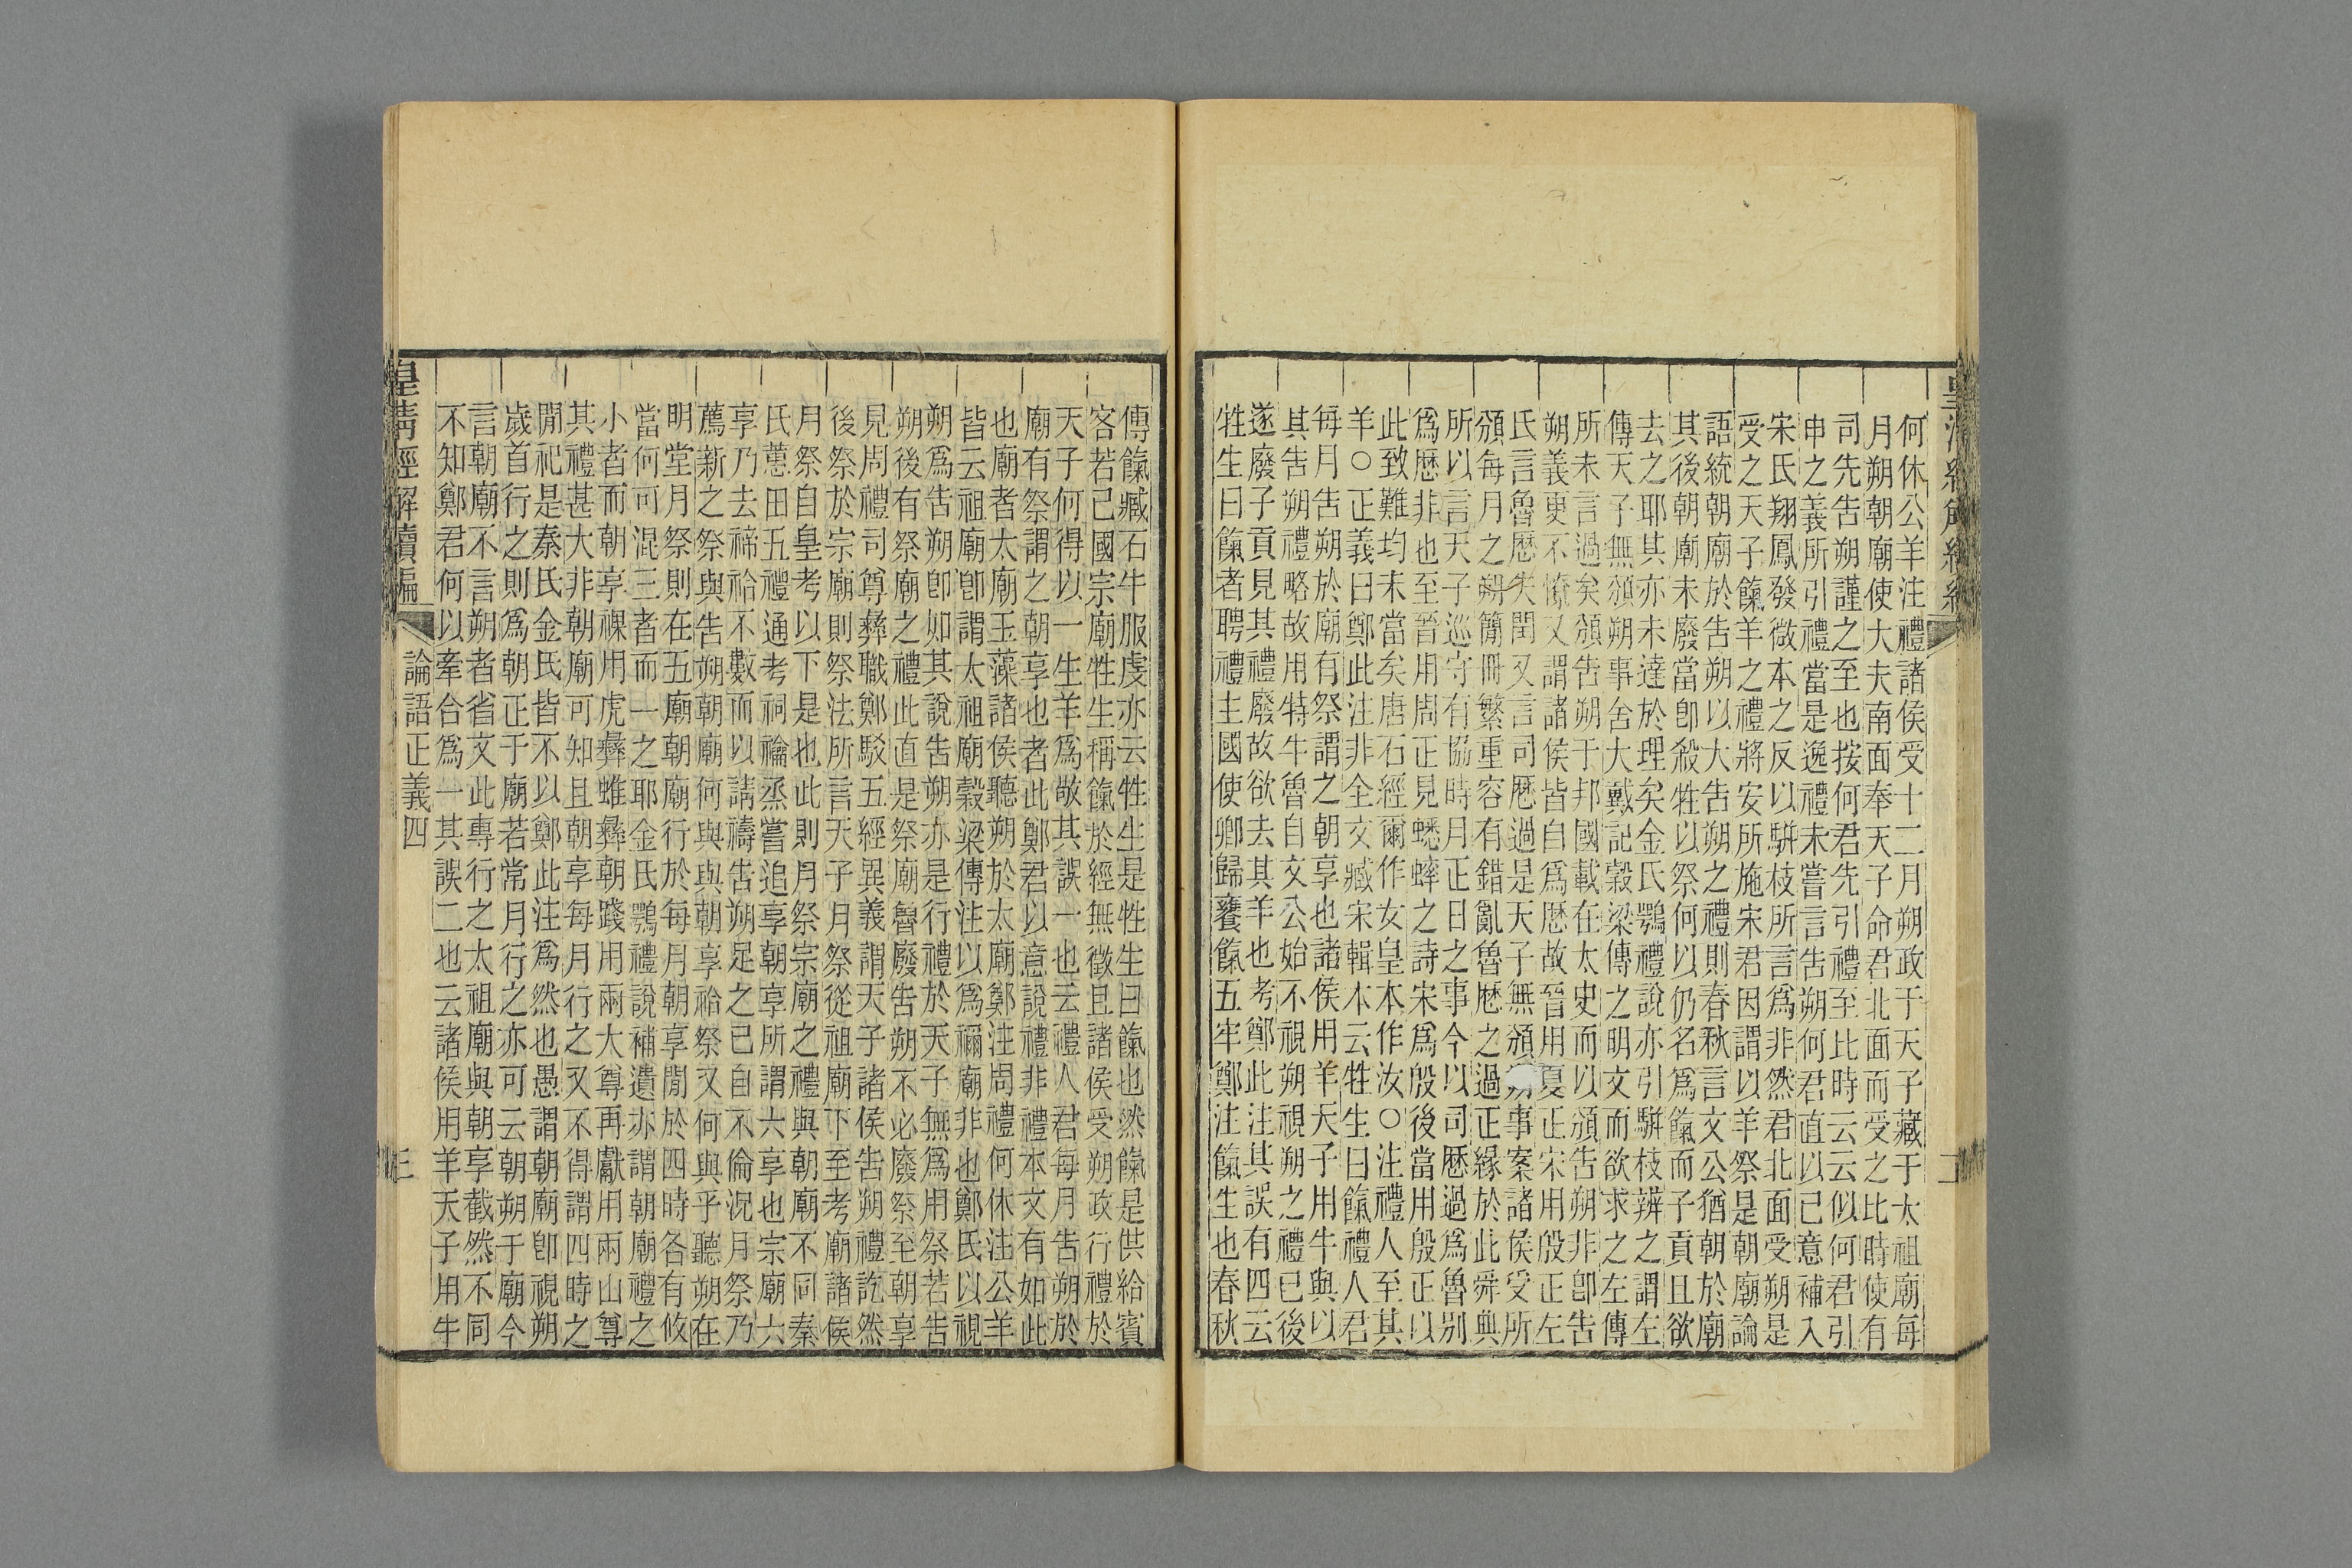 何休公羊注禮諸侯受十二月朔政于天子藏于太祖廟每
月朔朝廟使大夫南面奉天子命君北面而受之比時使有
司先告朔謹之至也按何君先引禮至比時云云似何君引
申之義所引禮當是逸禮未嘗言告朔何君直以己意補入
宋氏翔鳳發微本之反以駢枝所言為非然君北面受朔是
受之天子餼羊之禮將安所施宋君因謂以羊祭是朝廟論
語統朝廟於告朔以大告朔之禮則春秋言文公猶朝於廟
其後朝廟未廢當卽殺牲以祭何以仍名為餼而子貢且欲
去之耶其亦未達於理矣金氏鶚禮說亦引駢枝辨之謂左
傳天子無頒朔事舍大戴記穀梁傳之明文而欲求之左傳
所未言過矣頒告朔于邦國載在太史而以頒告朔非卽告
朔義更不憭又謂諸侯皆自為厯故晉用夏正宋用殷正左
氏言魯厯失閏又言司厯過是天子無頒朔事案諸侯受所
頒每月之朔簡冊繁重容有錯亂魯厯之過正緣於此舜典
所以言天子巡守有協時月正日之事今以司厯過為魯別
為厯非也至晉用周正見蟋蟀之詩宋為殷後當用殷正以
此致難均未當矣唐石經爾作女皇本作汝○注禮人至其
羊○正義曰鄭此注非全文臧宋輯本云牲生曰餼禮人君
每月告朔於廟有祭謂之朝享也諸侯用羊天子用牛與以
其告朔禮略故用特牛魯自文公始不視朔視朔之禮已後
遂廢子貢見其禮廢故欲去其羊也考鄭此注其誤有四云
牲生曰餼者聘禮主國使卿歸饔餼五牢鄭注餼生也春秋
傳餼臧石牛服虔亦云牲生是牲生曰餼也然餼是供給賓
客若己國宗廟牲生稱餼於經無徵且諸侯受朔政行禮於
天子何得以一生羊為敬其誤一也云禮人君每月告朔於
廟有祭謂之朝享也者此鄭君以意說禮非禮本文有如此
也廟者太廟玉藻諸侯聽朔於太廟鄭注周禮何休注公羊
皆云祖廟卽謂太祖廟穀梁傳注以為禰廟非也鄭氏以視
朔為告朔卽如其說告朔亦是行禮於天子無為用祭若告
朔後有祭廟之禮此直是祭廟魯廢告朔不必廢祭至朝享
見周禮司尊彝職鄭駁五經異義謂天子諸侯告朔禮訖然
後祭於宗廟則祭法所言天子月祭從祖廟下至考廟諸侯
月祭自皇考以下是也此則月祭宗廟之禮與朝廟不同秦
氏蕙田五禮通考祠禴烝嘗追享朝享所謂六享也宗廟六
享乃去禘祫不數而以請禱告朔足之已自不倫況月祭乃
薦新之祭與告朔朝廟何與與朝享祫祭又何與乎聽朔在
明堂月祭則在五廟朝廟行於每月朝享閒於四時各有攸
當何可混三者而一之耶金氏鶚禮說補遺亦謂朝廟禮之
小者而朝享祼用虎彝蜼彝朝踐用兩大尊再獻用兩山尊
其禮甚大非朝廟可知且朝享每月行之又不得謂四時之
閒祀是秦氏金氏皆不以鄭此注為然也愚謂朝廟卽視朔
歲首行之則為朝正于廟若常月行之亦可云朝朔于廟今
言朝廟不言朔者省文此專行之太祖廟與朝享截然不同
不知鄭君何以牽合為一其誤二也云諸侯用羊天子用牛
皇清經解續編
論語正義四
三